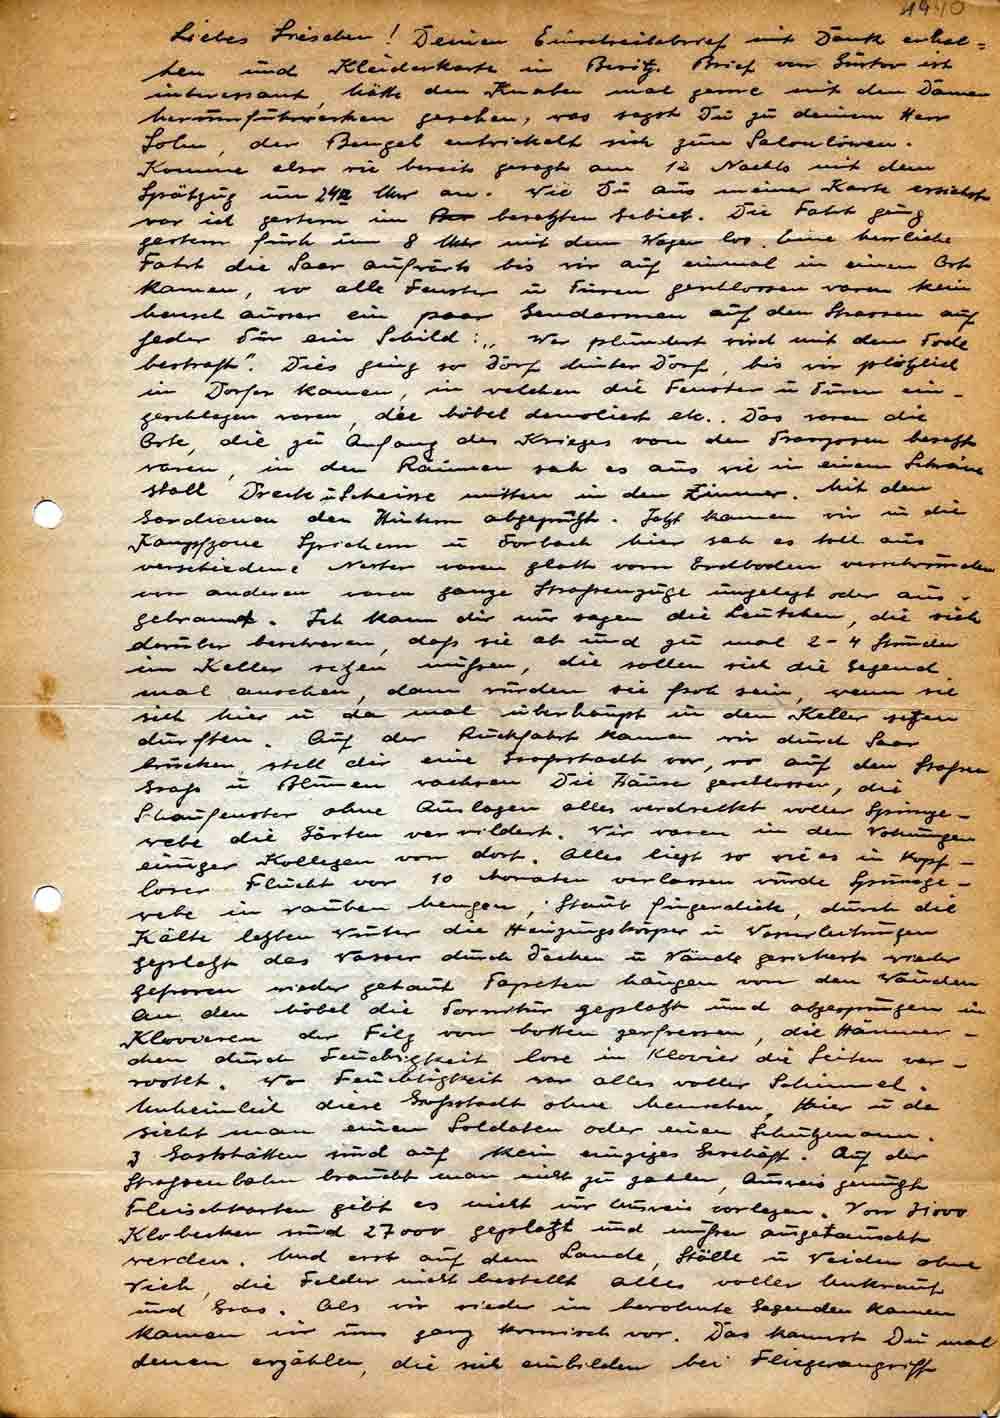 1940
Liebes Lieschen! Deinen Einschreibebrief mit Dank erhal=
ten und Kleiderkarte in Besitz. Brief von Günter ist
interessant, hätte den Knaben mal gerne mit den Damen
herumfuhrwerken gesehen, was sagst Du zu deinem Herr
Sohn, der Bengel entwickelt sich zum Salonlöwen.
Komme also wie bereits gesagt am 12 Nachts mit dem
Spätzug um 24 Uhr an. Wie Du aus meiner Karte ersiehst
war ich gestern im besetzten Gebiet. Die Fahrt ging
gestern früh um 8 Uhr mit dem Wagen los. Eine herrliche
Fahrt die Saar aufwärts bis wir auf einmal in einen Ort
kamen, wo alle Fenster u Türen geschlossen waren kein
Mensch ausser ein paar Gendarmen auf den Strassen auf
jeder Tür ein Schild: „Wer plündert wird mit dem Tode
bestraft". Dies ging so Dorf hinter Dorf, bis wir plötzlich
in Dörfer kamen, in welchen die Fenster u Türen ein-
geschlagen waren, die Möbel demoliert etc.. Das waren die
Orte, die zu Anfang des Krieges von den Franzosen besetzt
waren, in den Räumen sah es aus wie in einem Schweine
stall Dreck u Scheisse mitten in den Zimmer. Mit den
Gardienen den Hintern abgeputzt. Jetzt kamen wir in die
Kampfzone Spichern u Forbach hier sah es toll aus
verschiedene Nester waren glatt vom Erdboden verschwunden
von anderen waren ganze Strassenzüge umgelegt oder aus-
gebrannt. Ich kann dir nur sagen die Leutchen, die sich
darüber beschweren, daß sie ab und zu mal 2-4 Stunden
im Keller sitzen müssen, die sollen sich die Gegend
mal ansehen, dann würden sie froh sein, wenn sie
sich hier u da mal überhaupt in den Keller setzen
dürften. Auf der Rückfahrt kamen wir durch Saar
brücken, stell dir eine Großstadt vor, wo auf den Strassen
Gras u Blumen wachsen Die Häuser geschlossen, die
Schaufenster ohne Auslagen alles verdreckt voller Spinnge-
webe die Gärten verwildert. Wir waren in den Wohnungen
einiger Kollegen von dort. Alles liegt so wie es in kopf-
loser Flucht vor 10 Monaten verlassen wurde Spinnge-
webe in rauhen Mengen, Staub fingerdick, durch die
Kälte letzten Winter die Heizungskörper u Wasserleitungen
geplatzt das Wasser durch Decken u Wände gesickert wieder
gefroren wieder getaut Tapeten hängen von den Wänden
an den Möbel die Fornitur geplatzt und abgesprungen in
Klavieren der Filz von Motten zerfressen, die Hämmer-
chen durch Feuchtigkeit lose in Klavier die Seiten ver-
rostet. Wo Feuchtigkeit war alles voller Schimmel.
Unheimlich diese Großstadt ohne Menschen, Hier u da
sieht man einen Soldaten oder einen Schutzmann.
3 Gaststätten sind auf kein einziges Geschäft. Auf der
Strassenbahn braucht man nicht zu zahlen, Ausweis genügt
Fleischkarten gibt es nicht nur Ausweis vorlegen. Von 31000
Klobecken sind 27000 geplatzt und müssen ausgetauscht
werden. Und erst auf dem Lande, Ställe u Weiden ohne
Vieh, die Felder nicht bestellt alles voller Unkraut
und Gras. Als wir wieder in bewohnte Gegenden kamen
kamen wir uns ganz komisch vor. Das kannst Du mal
denen erzählen, die sich einbilden bei Fliegerangriff